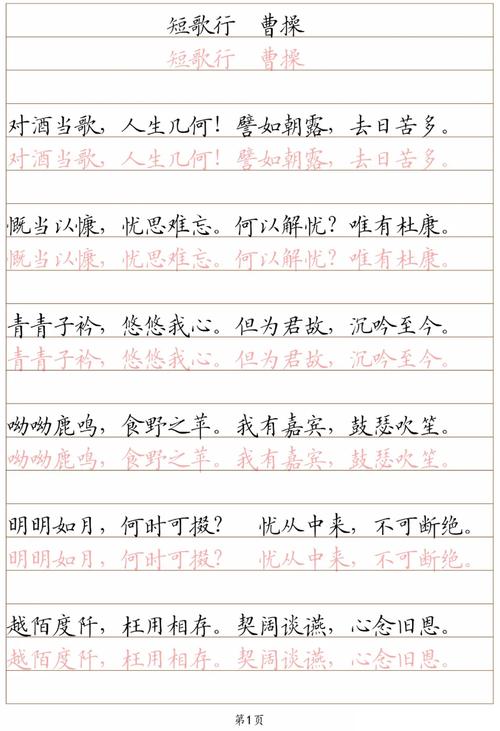 短歌行　曹操
短歌行　曹操
对酒当歌，人生几何！譬如朝露，去日苦多。
对酒当歌，人生几何！譬如朝露，去日苦多。
慨当以慷，忧思难忘。何以解忧？唯有杜康。
慨当以慷，忧思难忘。何以解忧？唯有杜康。
青青子衿，悠悠我心。但为君故，沉吟至今。
青青子衿，悠悠我心。但为君故，沉吟至今。
呦呦鹿鸣，食野之苹。我有嘉宾，鼓瑟吹笙。
呦呦鹿鸣，食野之苹。我有嘉宾，鼓瑟吹笙。
明明如月，何时可掇？　忧从中来，不可断绝。
明明如月，何时可掇？　忧从中来，不可断绝。
越陌度阡，枉用相存。契阔谈䜩，心念旧恩。
越陌度阡，枉用相存。契阔谈䜩，心念旧恩。
第1页